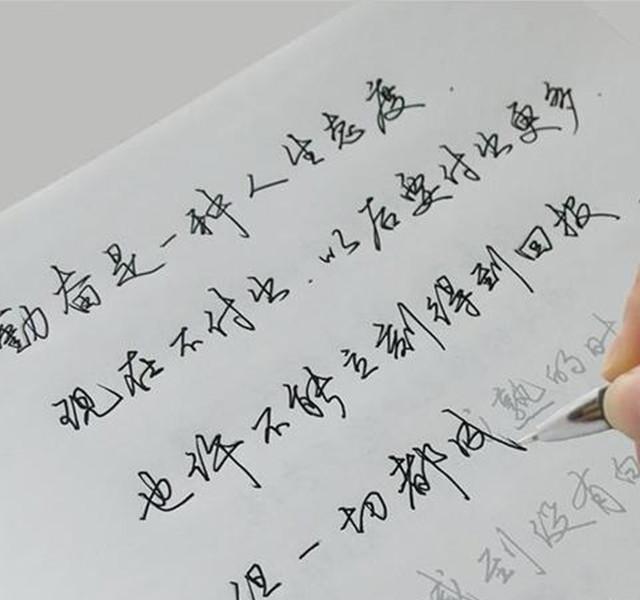 勤奋是一种人生态度.
现在不付出.以后要付出更多.
也许不能立刻得到回报
但一切都成熟的时
感到没有白